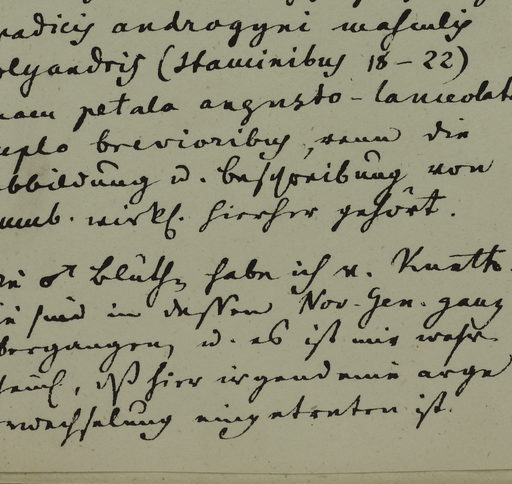 radicis androgyni masculis
olyandris (staminibus 18–22)
nam petala angusto-lanceolat
uplo brevioribus, wenn die
bbildung u. beschreibung von
umb. wirkl. hierher gehört.
♂ Blüth. habe ich v. Kunth.
ie sind in dessen Nov. Gen. ganz
bergangen, u. es ist mir wahr
, daß hier irgend eine arge
rwechselung eingetreten ist.